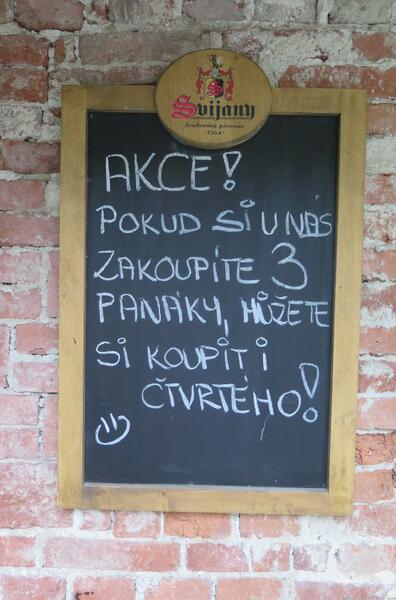 Svijany
Soukromý pivovar
· 1564 ·
AKCE!
POKUD SI U NÁS
ZAKOUPÍTE 3
PANÁKY, MŮŽETE
SI KOUPIT I
ČTVRTÉHO!